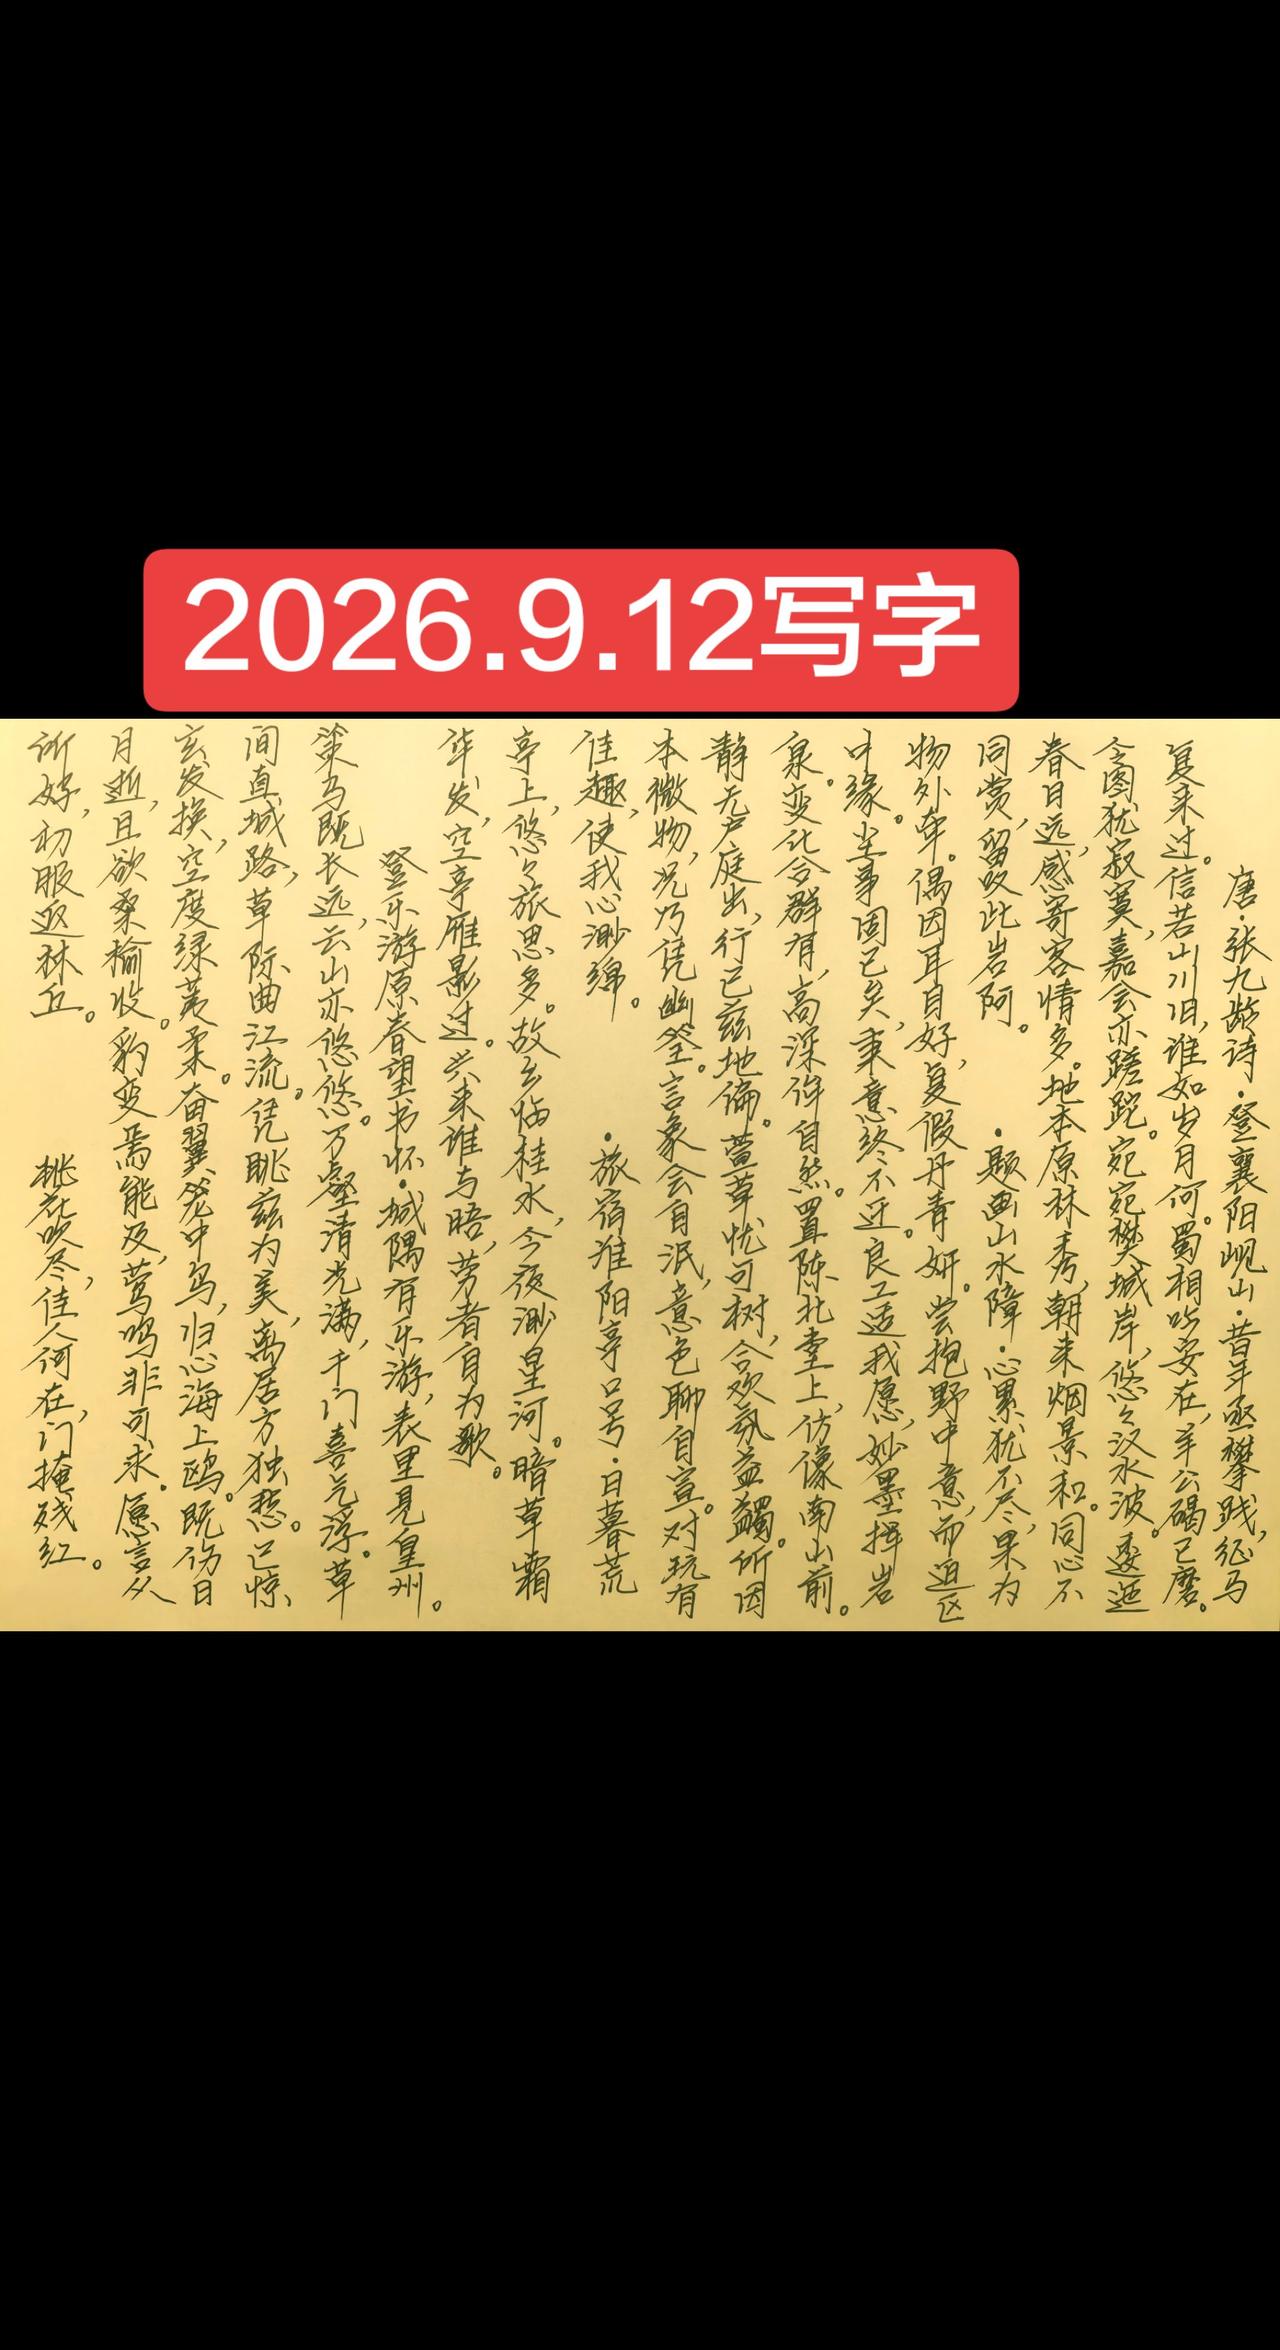 2026.9.12写字
唐·张九龄诗·登襄阳岘山·昔年亟攀践，征马
复来过。信若山川旧，谁如岁月何。蜀相吟安在，羊公碣已磨。
令图犹寂寞，嘉会亦蹉跎。宛宛樊城岸，悠々汉水波。逶迤
春日远，感寄客情多。地本原林秀，朝来烟景和。同心不
同赏，留叹此岩阿。 ·题画山水障·心累犹不尽，果为
物外牵。偶因耳目好，复假丹青妍。尝抱野中意，而迫区
中缘。尘事固已矣，秉意终不迁。良工适我愿，妙墨挥岩
泉。变化合群有，高深侔自然。置陈北堂上，仿像南山前。
静无户庭出，行已兹地偏。萱草忧可树，合欢忿益蠲。所因
本微物，况乃凭幽筌。言象会自泯，意色聊自宣。对玩有
佳趣，使我心渺绵。 ·旅宿淮阳亭口号·日暮荒
亭上，悠々旅思多。故乡临桂水，今夜渺星河。暗草霜
华发，空亭雁影过。兴来谁与晤，劳者自为歌。
登乐游原春望书怀·城隅有乐游，表里见皇州。
策马既长远，云山亦悠悠。万壑清光满，千门喜气浮。草
间直城路，草际曲江流。凭眺兹为美，离居方独愁。已惊
玄发换，空度绿荑柔。奋翼笼中鸟，归心海上鸥。既伤日
月逝，且欲桑榆收。豹变焉能及，莺鸣非可求。愿言从
所好，初服返林丘。 桃花吹尽，佳人何在，门掩残红。